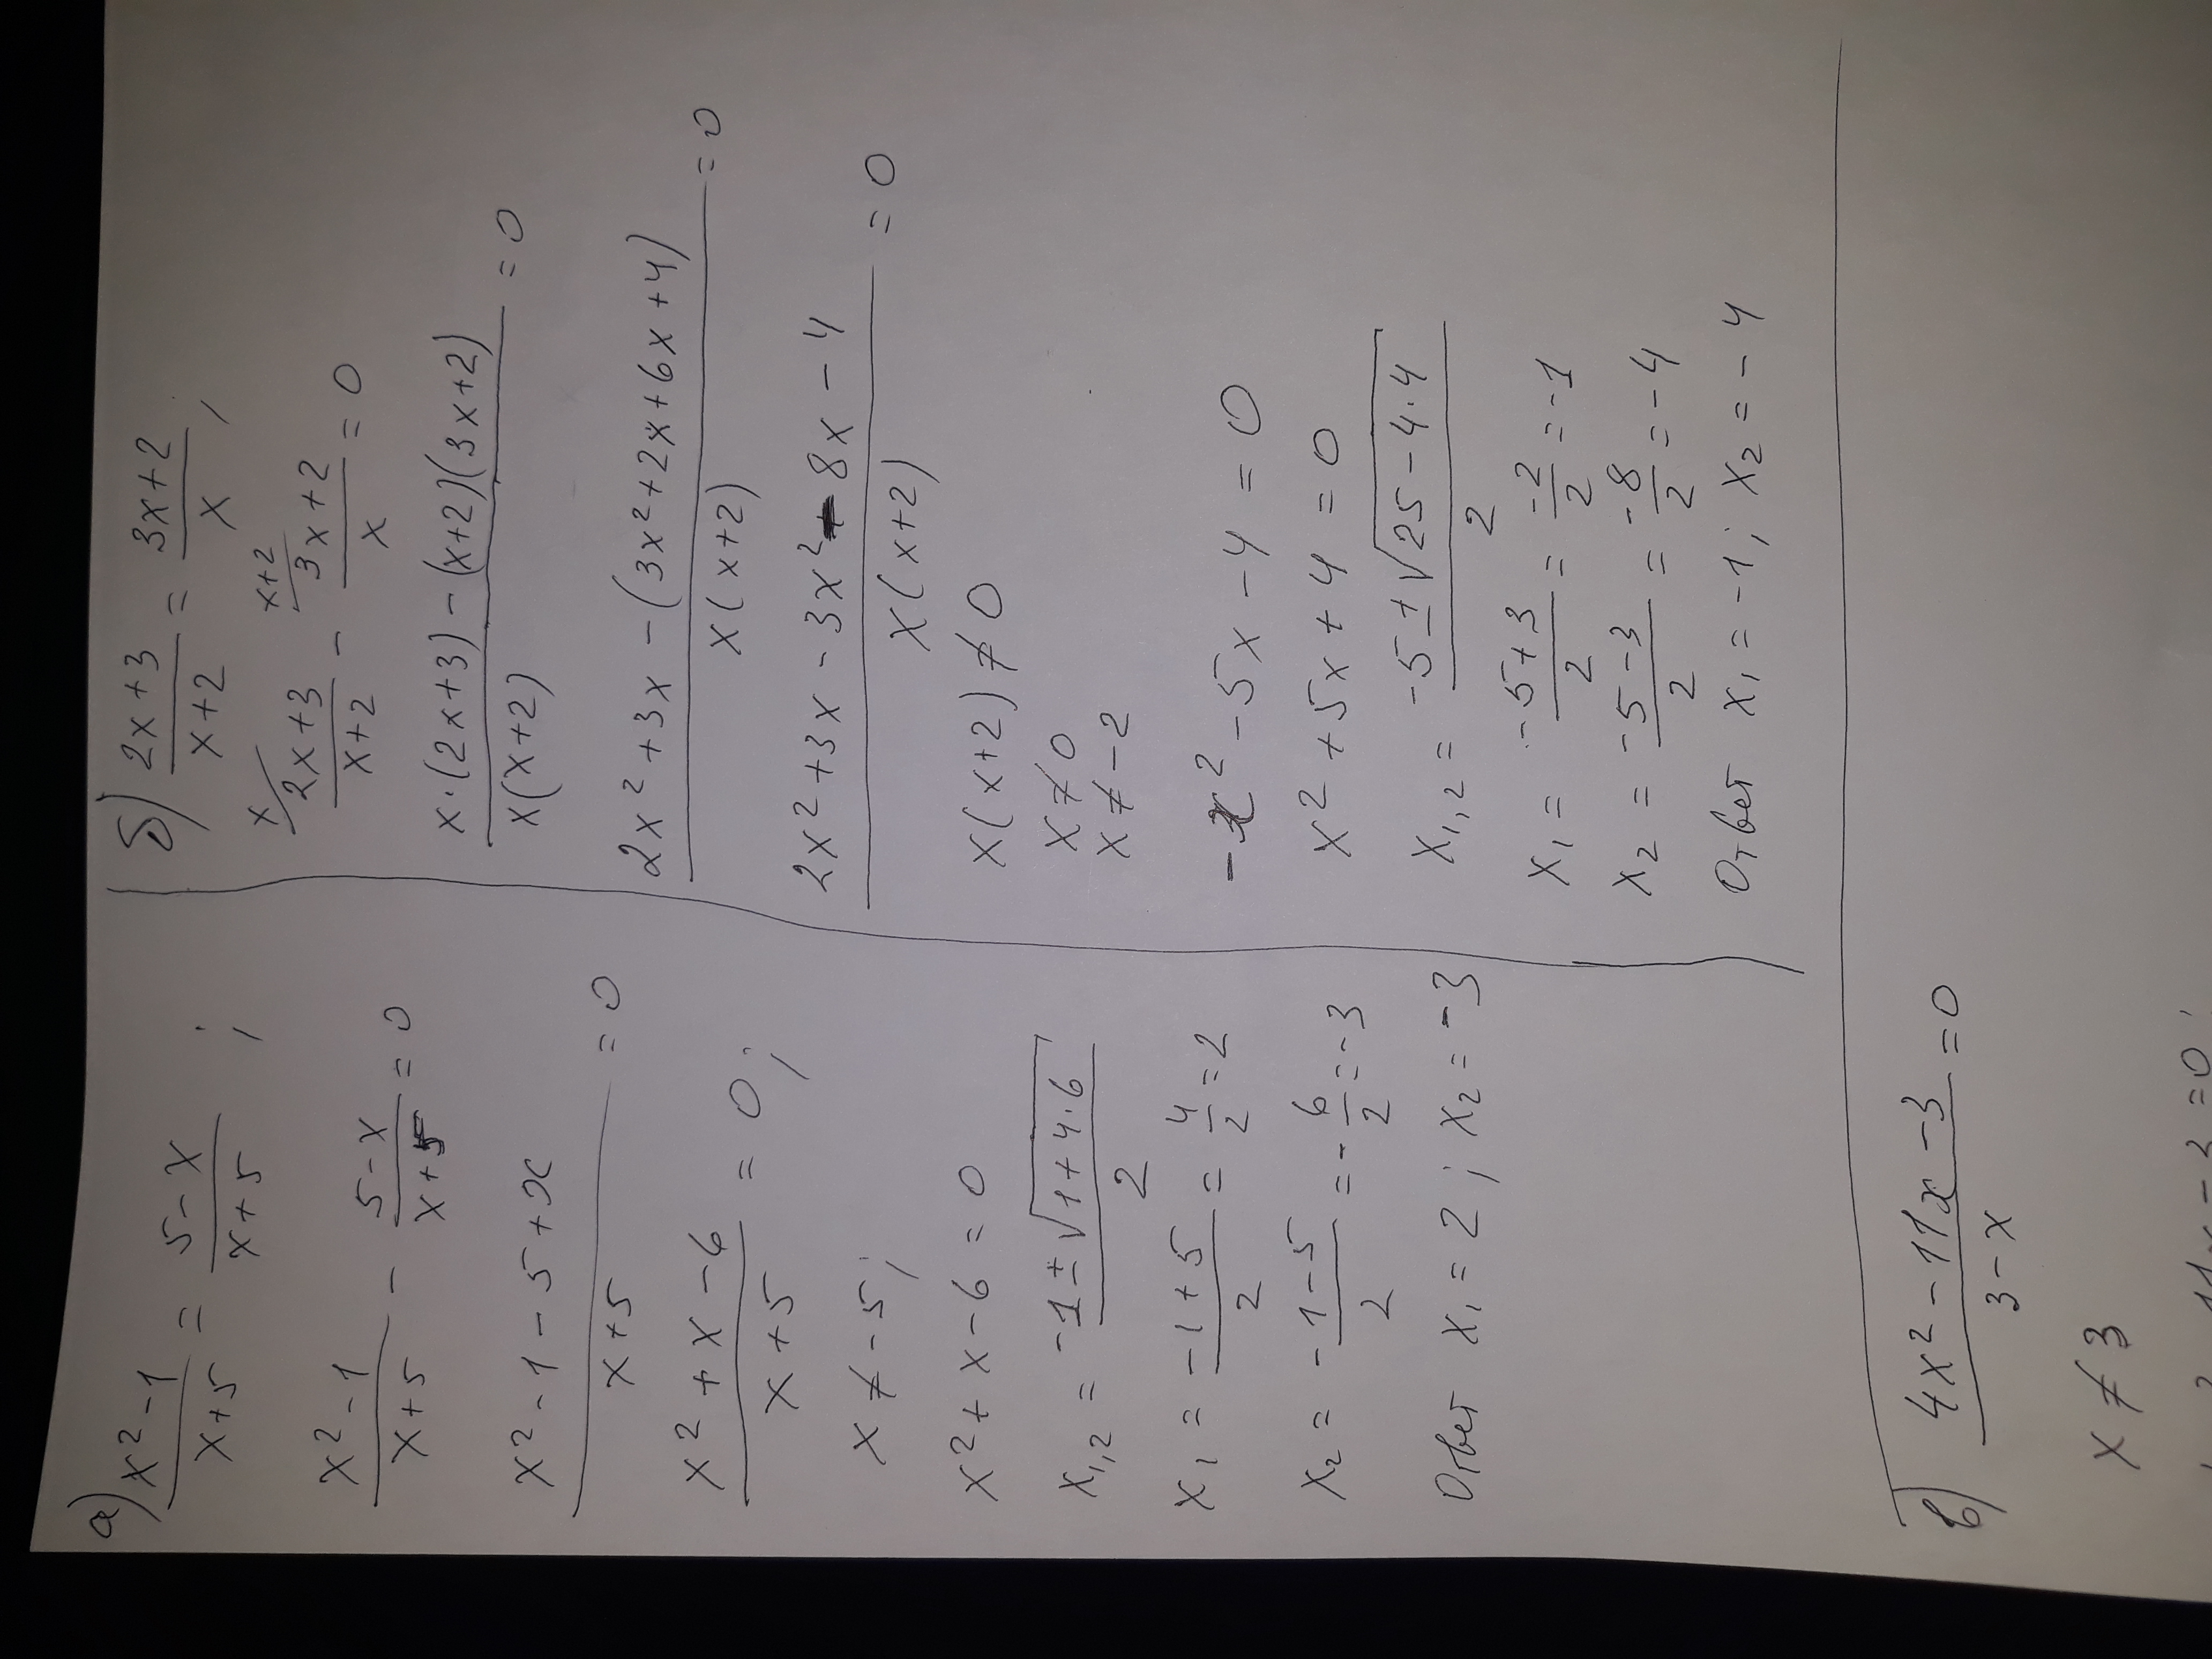 а) (x² - 1)/(x+5) = (5-x)/(x+5) ;
(x² - 1)/(x+5) - (5-x)/(x+5) = 0
(x² - 1 - 5 + x)/(x+5) = 0
(x² + x - 6)/(x+5) = 0 ;
x ≠ -5 ;
x² + x - 6 = 0
x₁,₂ = (-1 ± √(1+4·6))/2
x₁ = (-1+5)/2 = 4/2 = 2
x₂ = (-1-5)/2 = -6/2 = -3
Ответ x₁ = 2 ; x₂ = -3
б) (2x+3)/(x+2) = (3x+2)/x ;
x/ (2x+3)/(x+2) - x+2/ (3x+2)/x = 0
(x·(2x+3) - (x+2)(3x+2))/(x(x+2)) = 0
(2x² + 3x - (3x² + 2x + 6x + 4))/(x(x+2)) = 0
(2x² + 3x - 3x² - 8x - 4)/(x(x+2)) = 0
x(x+2) ≠ 0
x ≠ 0
x ≠ -2
-x² - 5x - 4 = 0
x² + 5x + 4 = 0
x₁,₂ = (-5 ± √(25-4·4))/2
x₁ = (-5+3)/2 = -2/2 = -1
x₂ = (-5-3)/2 = -8/2 = -4
Ответ x₁ = -1; x₂ = -4
в) (4x² - 11x - 3)/(3-x) = 0
x ≠ 3